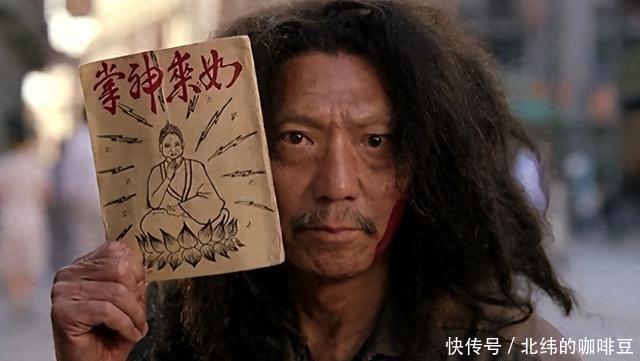 如来神掌
快传号 / 北纬的咖啡豆